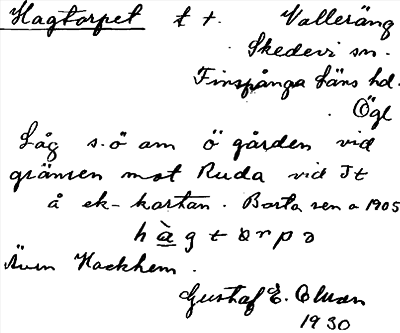 Hagtorpet t t. Valleräng
Skedevi sn.
Finspånga läns hd.
Ögl
Låg s.ö om ö gården vid
gränsen mot Ruda vid It
å ek-kartan. Borta sen a 1905
hàgtɒrpə
Även Hackhem.
Gustaf E.
1930